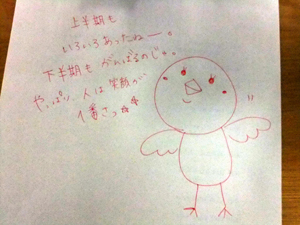 上半期も
いろいろあったねー。
下半期もがんばるのじゃ。
やっぱり、人は笑顔が
1番さっ☆☆